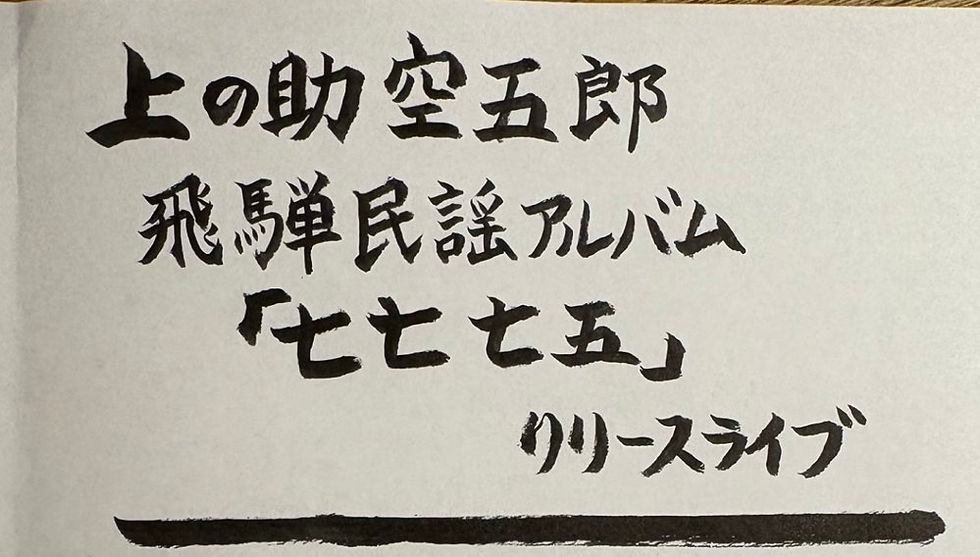 上の助空五郎
飛騨民謡アルバム
「七七七五」
リリースライブ